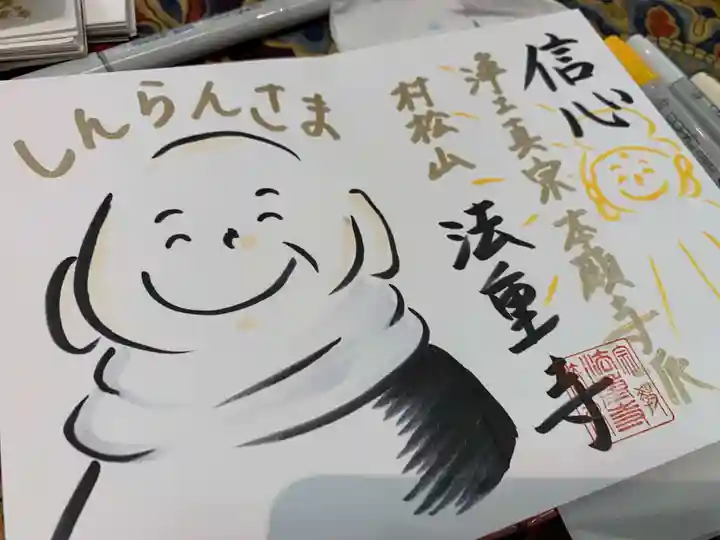 しんらんさま
信心
浄土真宗本願寺派
村松山
法重寺